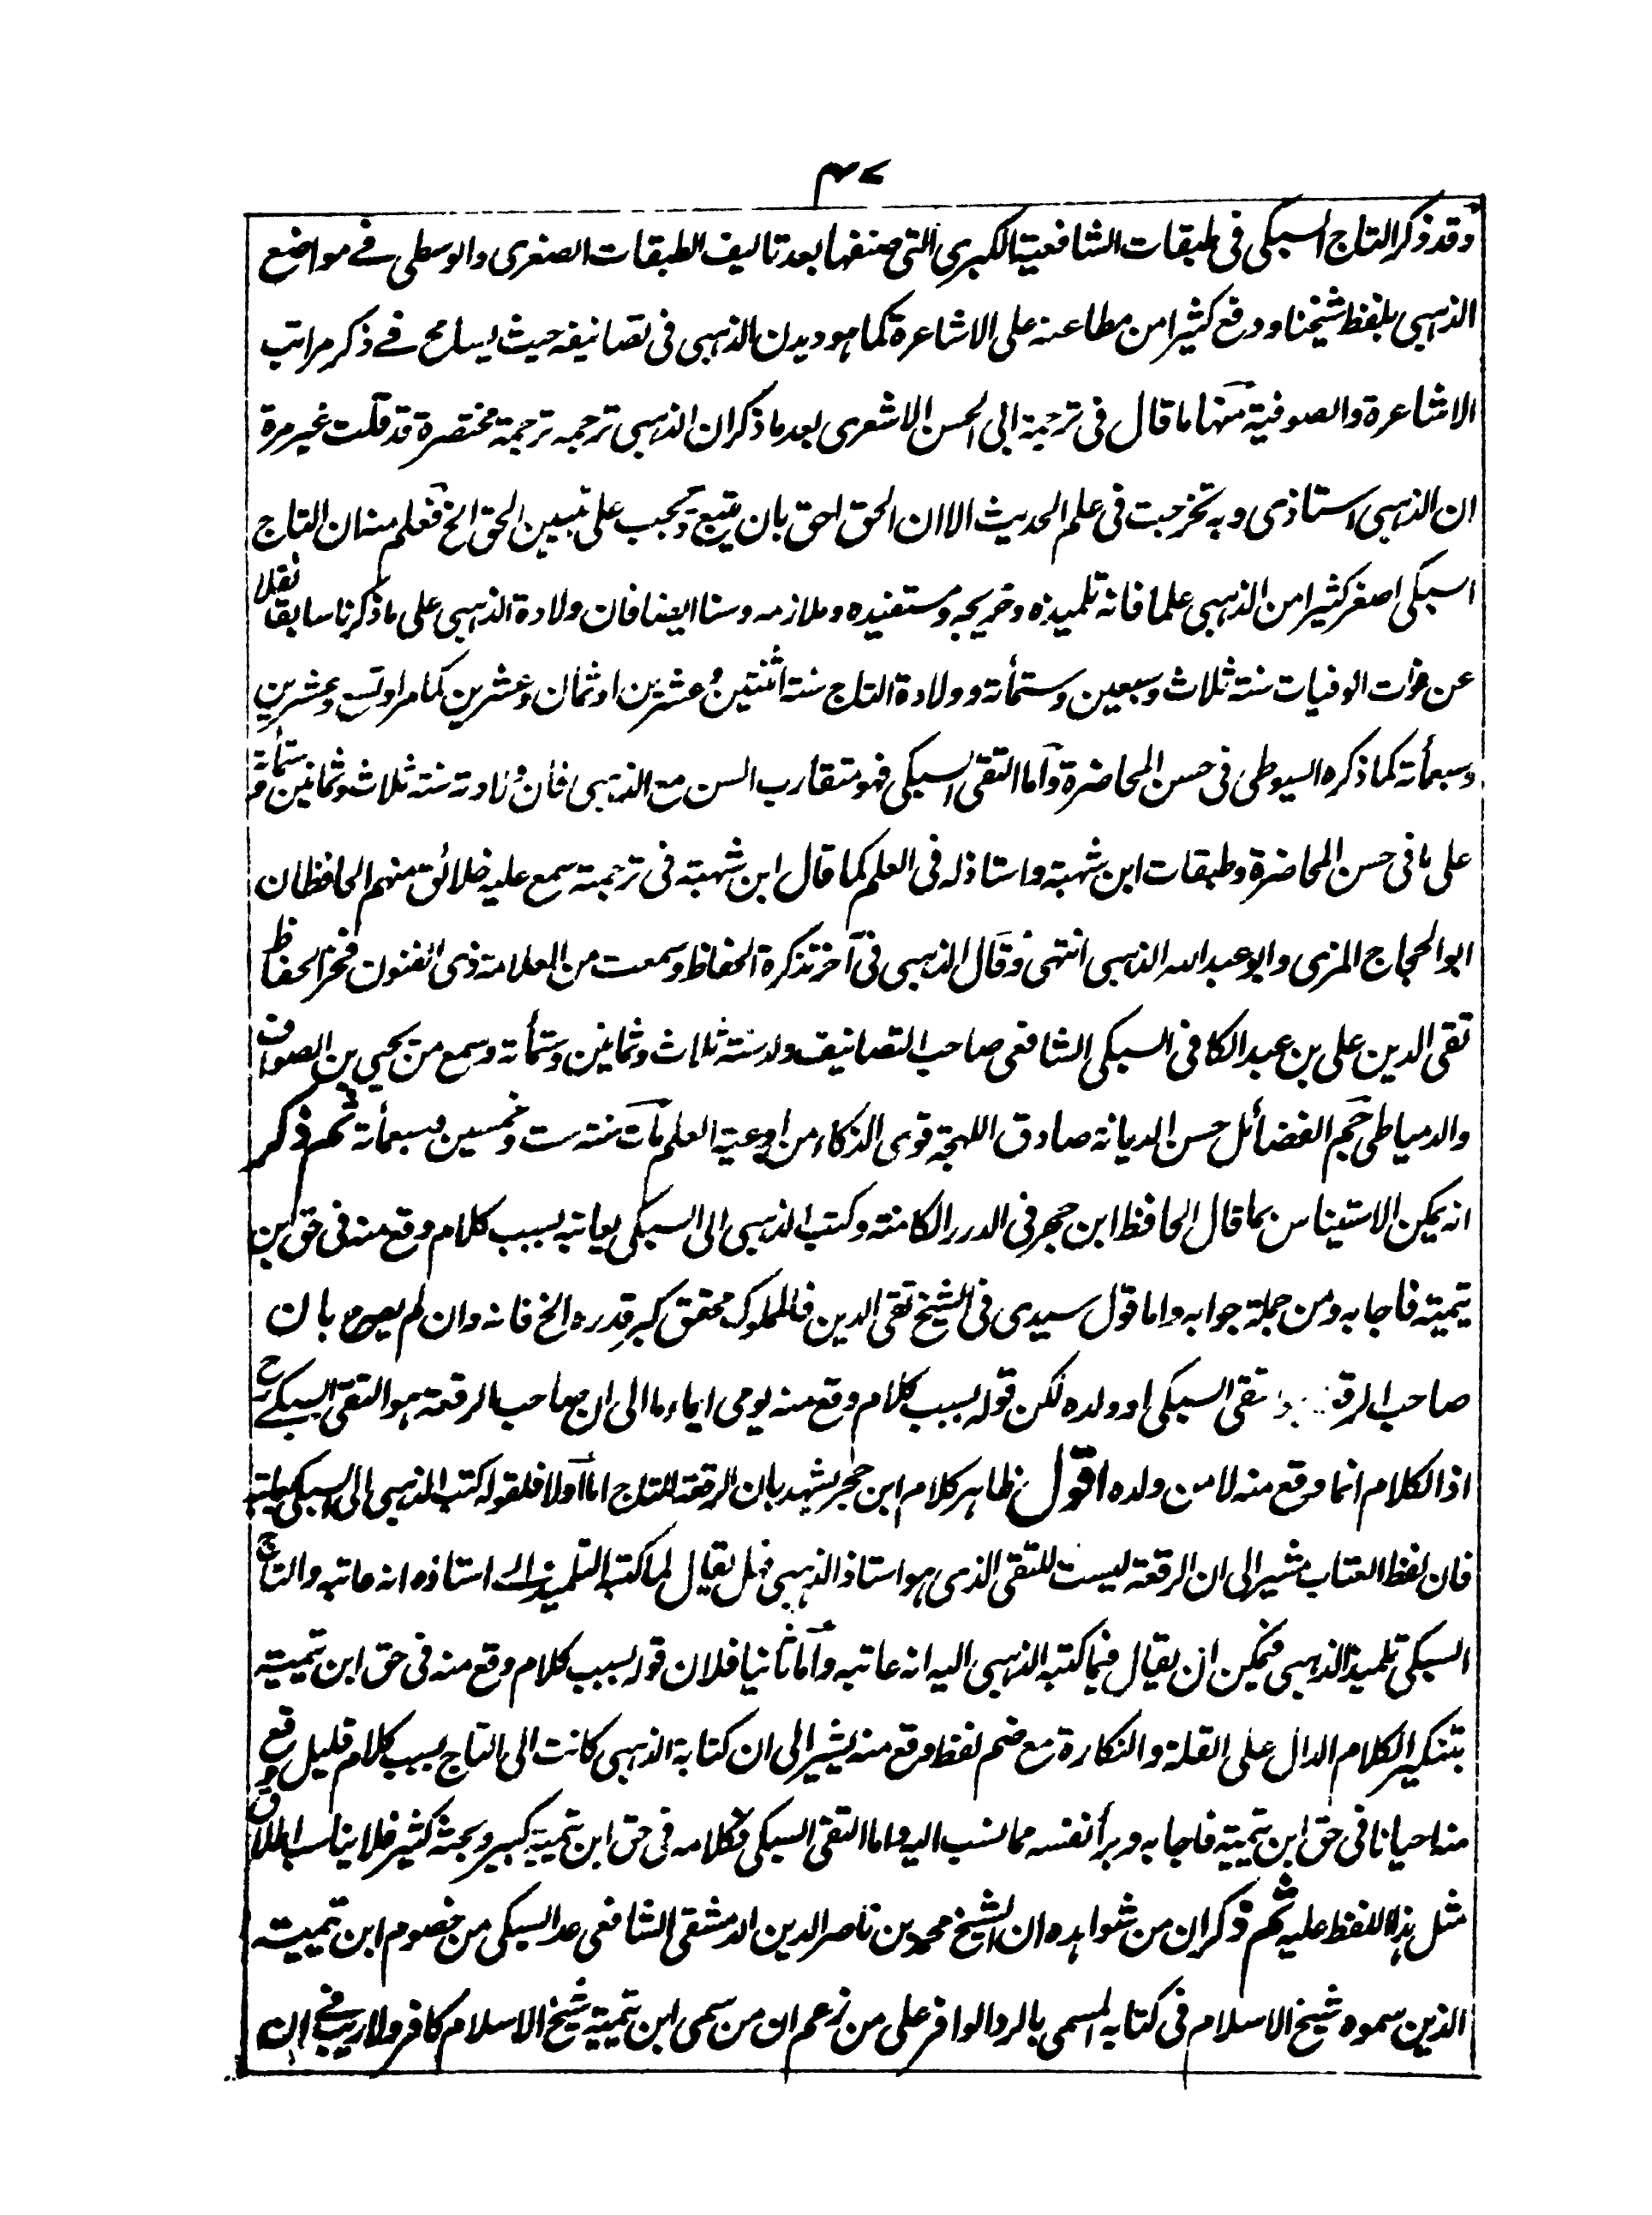 ۴۷
وقد ذكر التاج السبكى فى طبقات الشافعية الكبرى التى صنفها بعد تاليف الطبقات الصغرى والوسطى فے مواضع
الذهبى بلفظ شيخنا ودفع كثيرا من مطاعنه على الاشاعرة كما هو ديدن الذهبى فى تصانيفه حيث يسامح فے ذكر مراتب
الاشاعرة والصوفية منها ما قال فى ترجمة ابى الحسن الاشعرى بعد ما ذكر ان الذهبى ترجمه ترجمة مختصرة قد قلت غير مرة
ان الذهبى استاذى وبه تخرجت فى علم الحديث الا ان الحق احق بان يتبع ويجب على تبيين الحق الخ فعلم منه ان التاج
السبكى اصغر كثيرا من الذهبى علما فانه تلميذه وخريجه ومستفيده وملازمه وسنا ايضا فان ولادة الذهبى على ما ذكرنا سابقا نقلا
عن فوات الوفيات سنة ثلاث وسبعين وستمأته وولادة التاج سنة اثنتين وعشرين او ثمان وعشرين كما مر او تسع وعشرين
وسبعمأته كما ذكره السيوطى فى حسن المحاضرة واما التقى السبكى فهو متقارب السن مع الذهبى فان ولادته سنة ثلاث وثمانين وستمأته
على ما فى حسن المحاضرة وطبقات ابن شهبة واستاذ له فى العلم كما قال ابن شهبة فى ترجمته سمع عليه خلائق منهم الحافظان
ابو الحجاج المزى وابو عبد الله الذهبى انتهى وقال الذهبى فى آخر تذكرة الحفاظ وسمعت من العلامة ذى الفنون فخر الحفاظ
تقى الدين على بن عبد الكافى السبكى الشافعى صاحب التصانيف ولد سنة ثلاث وثمانين وستمأته وسمع من يحيى بن الصواف
والدمياطى جم الفضائل حسن الديانه صادق اللهجة قوى الذكاء من اوعية العلم مات سنة ست وخمسين وسبعمأته ثم ذكر
انه يمكن الاستيناس بما قال الحافظ ابن حجر فى الدرر الكامنة وكتب الذهبى الى السبكى يعاتبه بسبب كلام وقع منه فى حق ابن
تيمية فاجابه ومن جملة جوابه واما قول سيدى فى الشيخ تقى الدين فالمملوك محقق كبر قدره الخ فانه وان لم يصرح بان
صاحب الرق تقى السبكى او ولده لكن قوله بسبب كلام وقع منه يومى ايماء ما الى ان صاحب الرقعة هو التقى السبكے رح
اذ الكلام انما وقع منه لا من ولده اقول ظاهر كلام ابن حجر يشهد بان الرقعة للتاج اما اولا فلقوله كتب الذهبى الى السبكى يعاتبه
فان لفظ العتاب مشير الى ان الرقعة ليست للتقى الذى هو استاذ الذهبى فهل يقال لما كتبه التلميذ الے استاذه انه عاتبه والتاج
السبكى تلميذ الذهبى فيمكن ان يقال فيما كتبه الذهبى اليه انه عاتبه واما ثانيا فلان قوله بسبب كلام وقع منه فى حق ابن تيمية
بتنكير الكلام الدال على القلة والنكارة مع ضم لفظ وقع منه يشير الى ان كتابة الذهبى كانت الى التاج بسبب كلام قليل وقع
منه احيانا فى حق ابن تيمية فاجابه وبرأ نفسه مما نسب اليه واما التقى السبكى فكلامه فى حق ابن تيمية كبير وبحثه كثير فلا يناسب اطلاق
مثل هذا اللفظ عليه ثم ذكر ان من شواهده ان الشيخ محمد بن ناصر الدين الدمشقى الشافعى عد السبكى من خصوم ابن تيمية
الذين سموه شيخ الاسلام فى كتابه المسمى بالرد الوافر على من زعم ان من سمى ابن تيمية شيخ الاسلام كافر ولا ريب فے ان